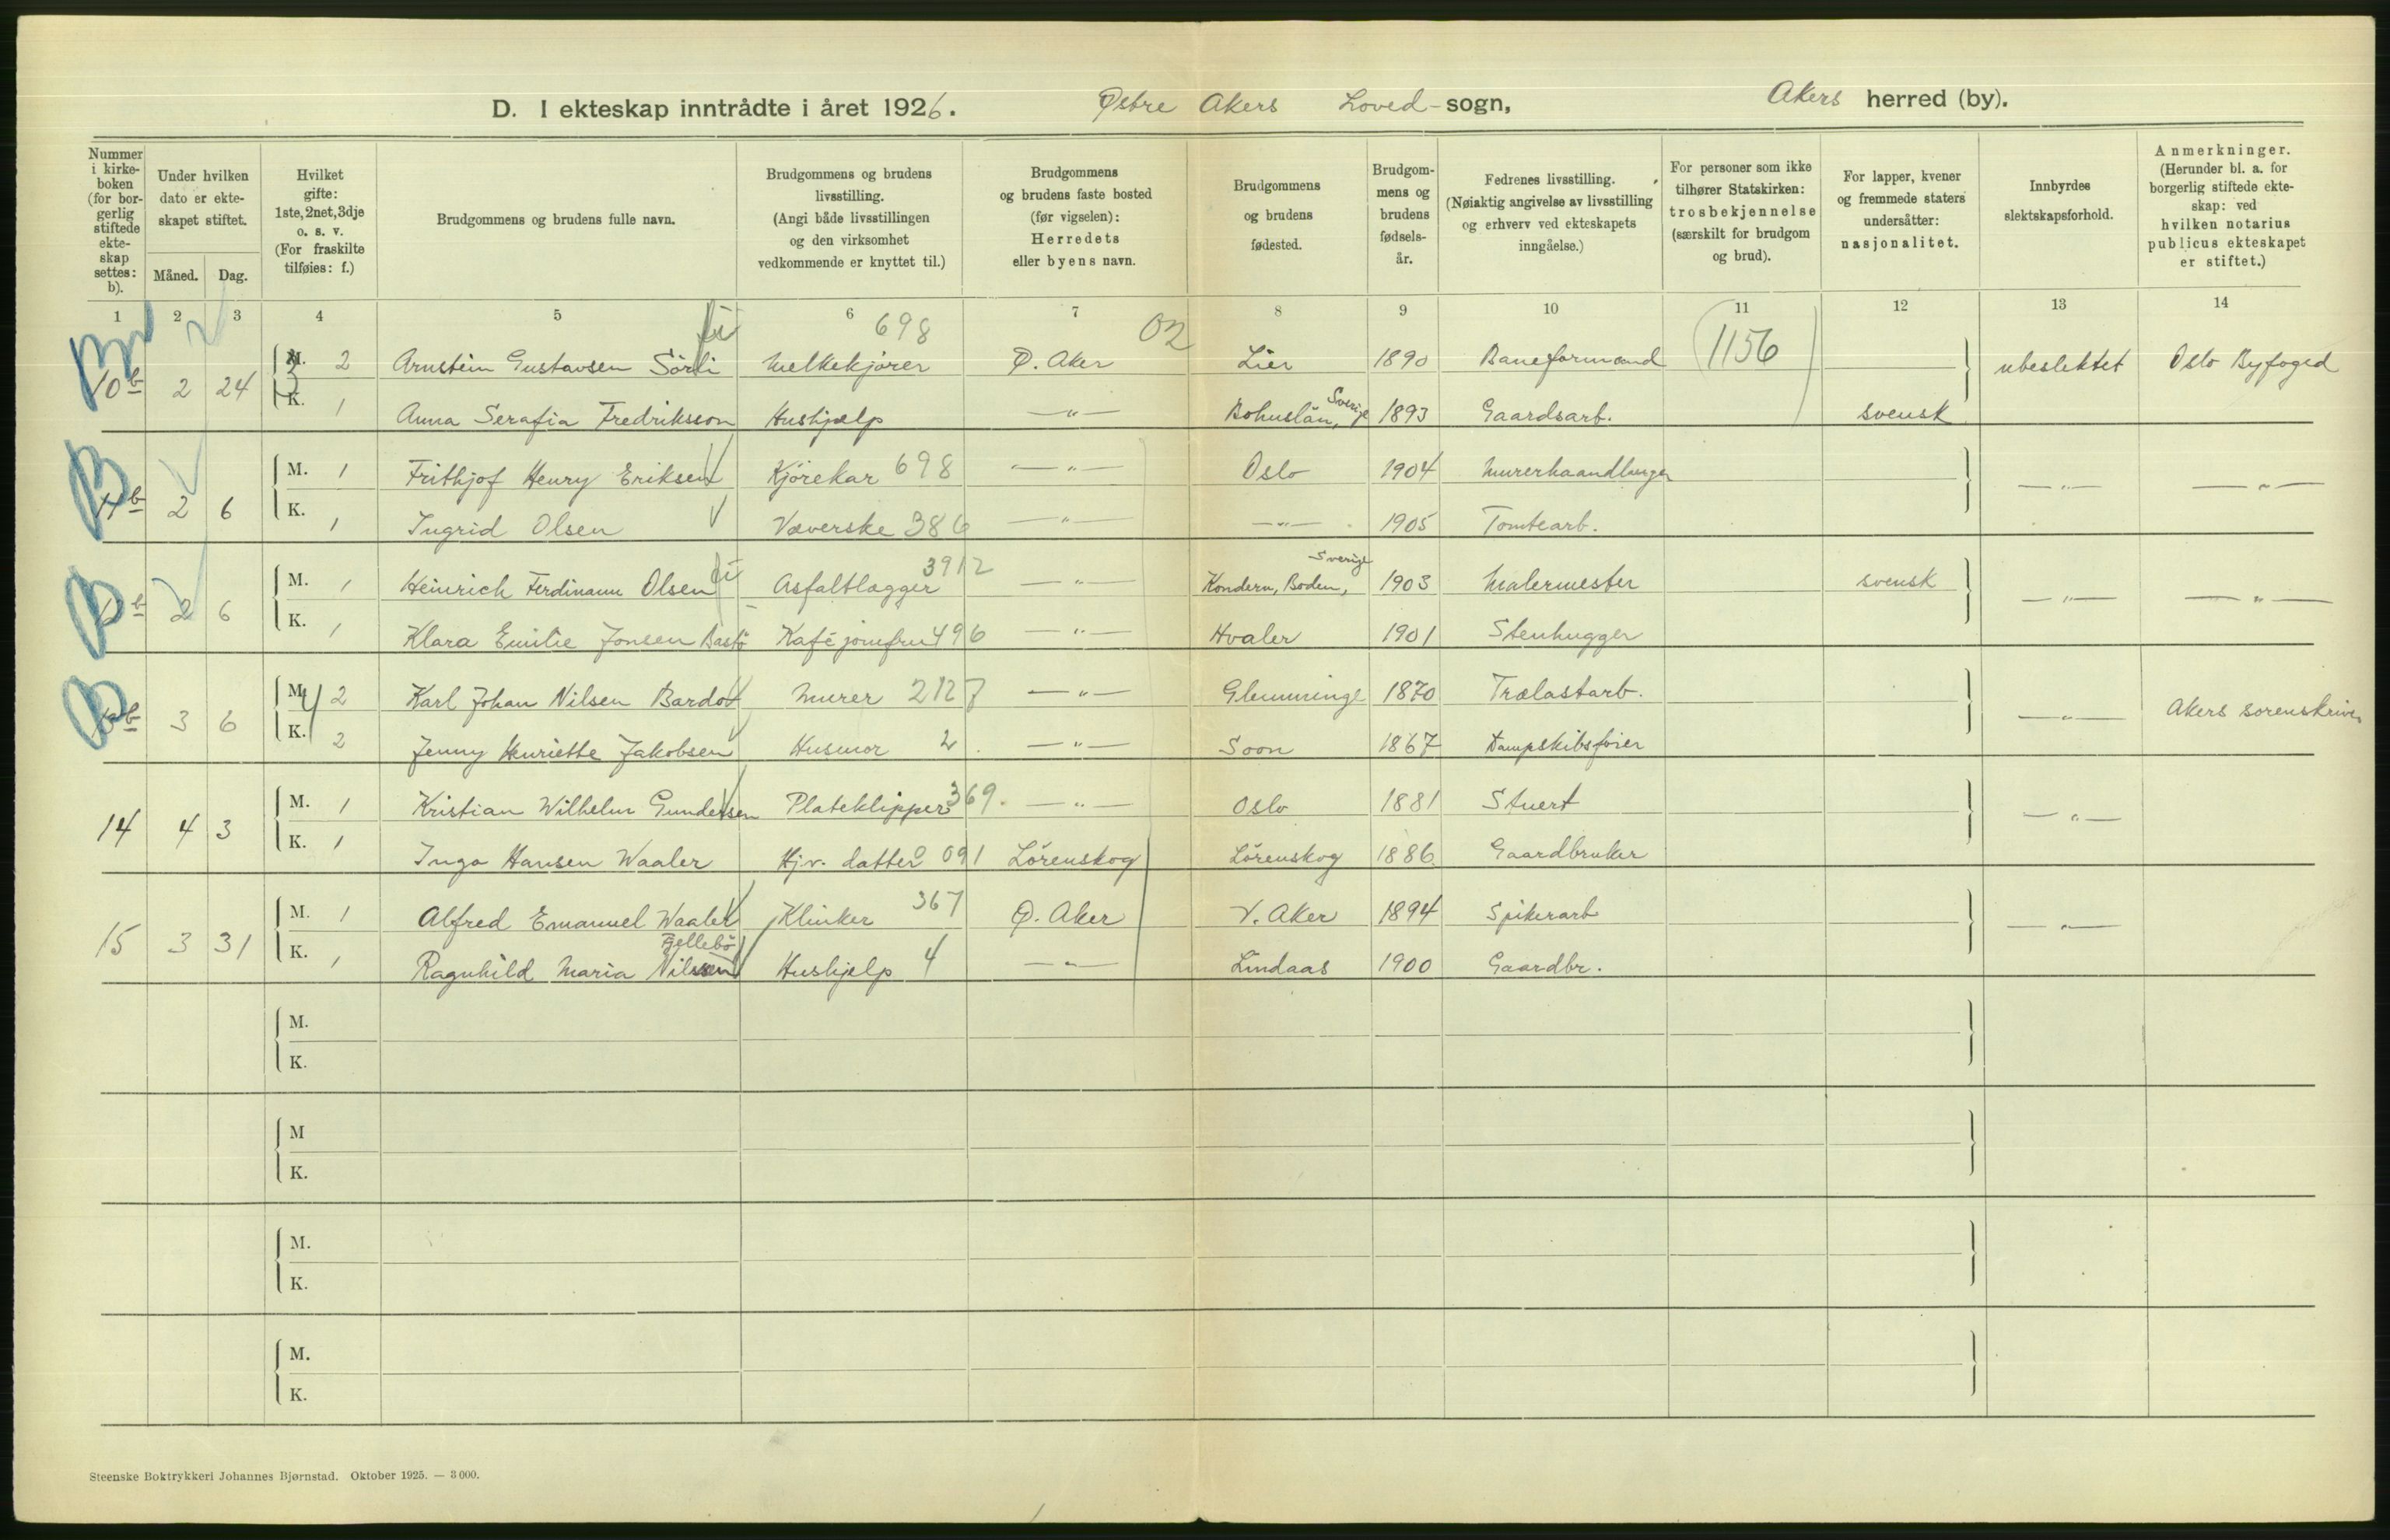 D. I ekteskap inntrådte i året 1926. Østre Akers Hoved-sogn, Akers herred (by).
Nummer i kirke-boken (for bor-gerlig stiftede ekte-skap settes: b).
Under hvilken dato er ekte-skapet stiftet.
Måned. Dag.
Hvilket gifte: 1ste, 2net, 3dje o. s. v. (For fraskilte tilføies: f.)
Brudgommens og brudens fulle navn.
Brudgommens og brudens livsstilling. (Angi både livsstillingen og den virksomhet vedkommende er knyttet til.)
Brudgommens og brudens faste bosted (før vigselen): Herredets eller byens navn.
Brudgommens og brudens fødested.
Brudgom-mens og brudens fødsels-år.
Fedrenes livsstilling. (Nøiaktig angivelse av livsstilling og erhverv ved ekteskapets inngåelse.)
For personer som ikke tilhører Statskirken: trosbekjennelse (særskilt for brudgom og brud).
For lapper, kvener og fremmede staters undersåtter: nasjonalitet.
Innbyrdes slektskapsforhold.
Anmerkninger. (Herunder bl. a. for borgerlig stiftede ekte-skap: ved hvilken notarius publicus ekteskapet er stiftet.)
1 2 3 4 5 6 7 8 9 10 11 12 13 14
698 02
10b 2 24 M. 2 Arnstein Gustavsen Sörli Melkekjører Ø. Aker Lier 1890 Baneformand 1156 ubeslektet Oslo Byfoged
K. 1 Anna Serafia Fredriksson Hushjælp —"— Bohuslän, Sverige 1893 Gaardsarb. svensk
11b 2 6 M. 1 Frithjof Henry Eriksen Kjørekar 698 —"— Oslo 1904 Murerhaandlanger —"— —"—
K. 1 Ingrid Olsen Væverske 386 —"— —"— 1905 Tomtearb.
2 6 M. 1 Heinrich Ferdinann Olsen Asfaltlægger 3912 —"— Kondern, Boden, Sverige 1903 Malermester svensk —"— —"—
K. 1 Klara Emilie Jonsen Bastö Kaféjomfru 496 —"— Hvaler 1901 Stenhugger
3 6 M. 2 Karl Johan Nilsen Bardot Murer 2127 —"— Glemminge 1870 Trælastarb. —"— Akers sorenskriver
K. 2 Jenny Henriette Jakobsen Husmor 2 —"— Soon 1867 Dampskibsfører
14 4 3 M. 1 Kristian Wilhelm Gundersen Plateklipper 369. —"— Oslo 1881 Stuert —"—
K. 1 Inga Hansen Waaler Hjv. datter 091 Lörenskog Lörenskog 1886 Gaardbruker
15 3 31 M. 1 Alfred Emanuel Waaler Klinker 367 Ø. Aker V. Aker 1894 Spikerarb —"—
K. 1 Ragnhild Maria Nilssen Fjellebö Hushjelp 4 —"— Lindaas 1900 Gaardbr.
M.
K.
M
K.
M.
K.
M.
K.
Steenske Boktrykkeri Johannes Bjørnstad. Oktober 1925. — 3 000.